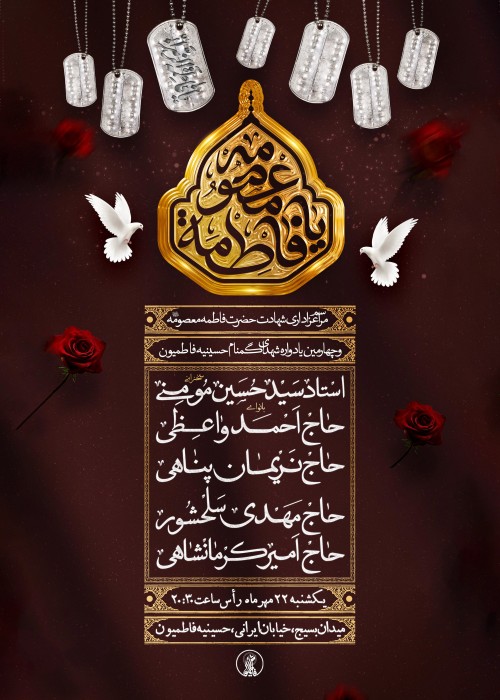 یا فاطمة معصومه
مراسم عزاداری شهادت حضرت فاطمه معصومه
و چهارمین یادواره شهدای گمنام حسینیه فاطمیون
سخنرانی
استاد سید حسین مومنی
بانوای
حاج احمد واعظی
حاج نریمان پناهی
حاج مهدی سلحشور
حاج امیر کرمانشاهی
یکشنبه ۲۲ مهر ماه رأس ساعت ۲۰:۳۰
میدان بسیج، خیابان ایرانی، حسینیه فاطمیون